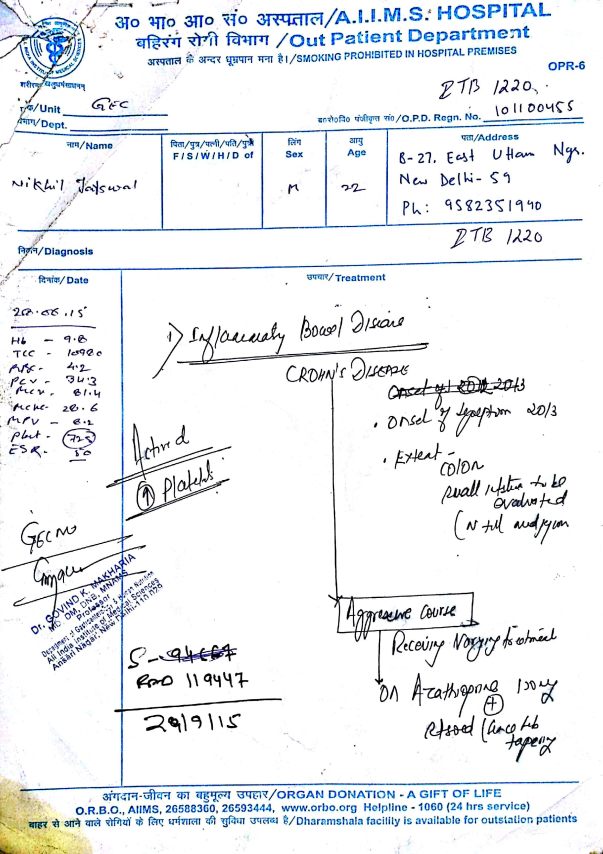 अ० भा० आ० सं० अस्पताल/A.I.I.M.S. HOSPITAL
बहिरंग रोगी विभाग /Out Patient Department
अस्पताल के अन्दर धूम्रपान मना है।/SMOKING PROHIBITED IN HOSPITAL PREMISES
OPR-6
शरीरमाद्यं खलुधर्मसाधनम्
IBTB 1220
एकक/Unit GEC
विभाग/Dept.
ब०रो०वि० पंजीकृत सं०/O.P.D. Regn. No. 101100455
नाम/Name
पिता/पुत्र/पत्नी/पति/पुत्री
F/S/W/H/D of
लिंग
Sex
आयु
Age
पता/Address
Nikhil Jayswal
M
22
B-27, East Uttam Ngr.
New Delhi-59
Ph: 9582351940
निदान/Diagnosis
दिनांक/Date
उपचार/Treatment
28.06.15
Hb - 9.8
TCC - 10980
RBC - 4.2
PCV - 34.3
MCV - 81.4
MCHC - 28.6
MPV - 8.2
Plat - 725
ESR - 50
1) Inflammatory Bowel Disease
CROHN'S DISEASE
Onset of 2013
• Onset of symptom 2013
• Extent -
COLON
small intestine to be
evaluated
Active d
↑ Platelets
Dr. GOVIND K. MAKHARIA
MD, DM, DNB, MNAMS
Professor
Department of Gastroenterology & Human Nutrition
All India Institute of Medical Sciences
Ansari Nagar, New Delhi-110 029
Aggressive Course
Receiving Varying treatment
On Azathioprine 150mg
+
tapering
S- 94667
119447
29/9/15
अंगदान-जीवन का बहुमूल्य उपहार/ORGAN DONATION - A GIFT OF LIFE
O.R.B.O., AIIMS, 26588360, 26593444, www.orbo.org Helpline - 1060 (24 hrs service)
बाहर से आने वाले रोगियों के लिए धर्मशाला की सुविधा उपलब्ध है/Dharamshala facility is available for outstation patients